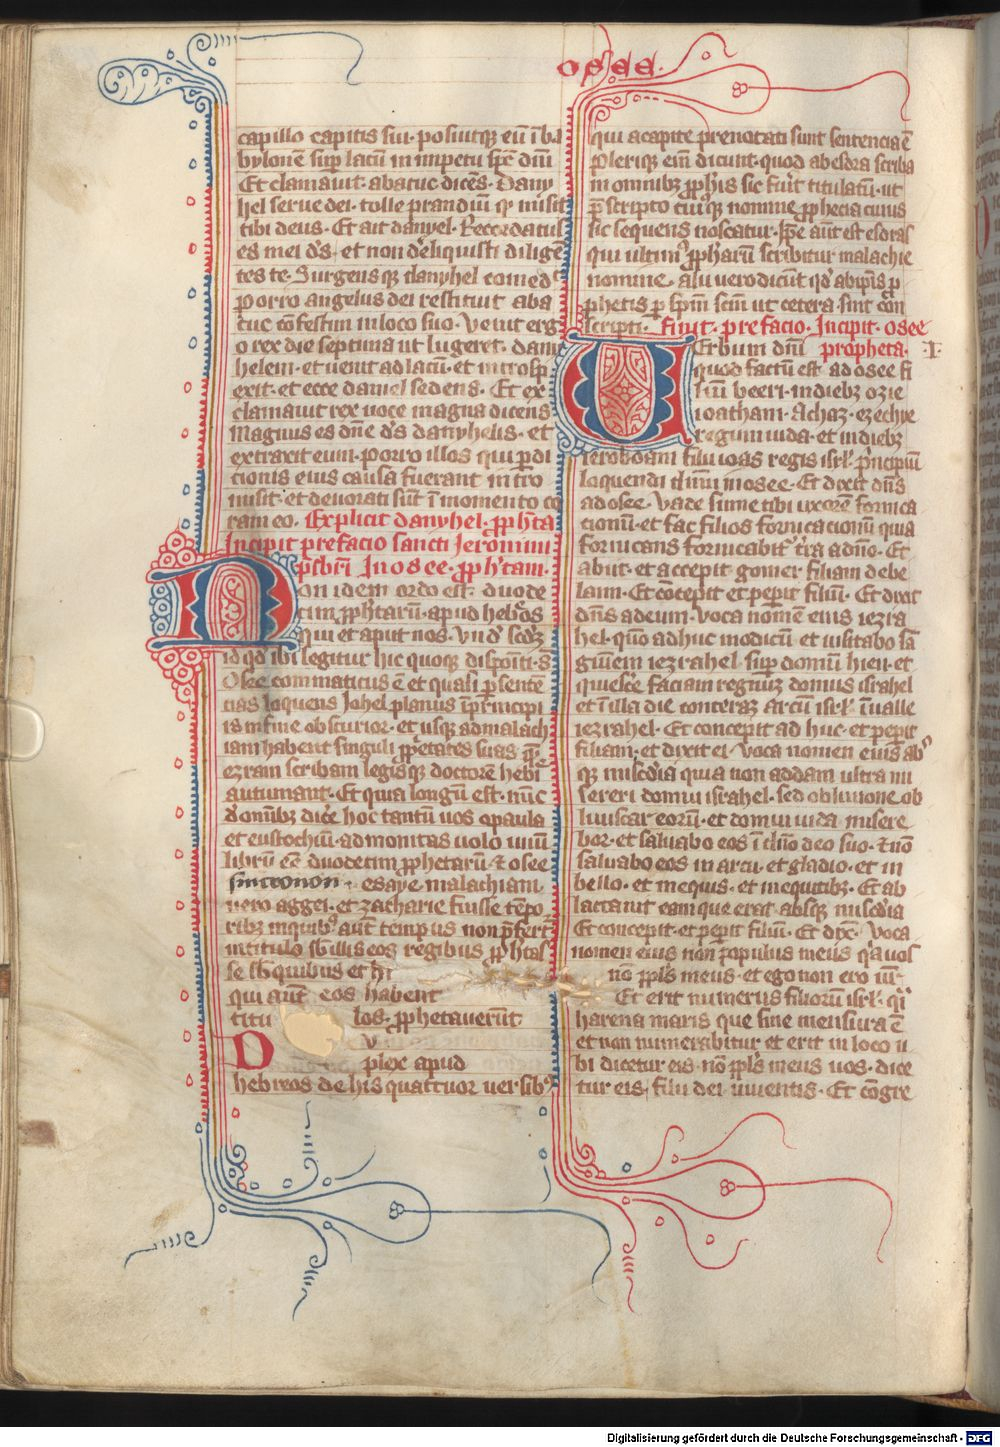 osee.
capillo capitis sui. posuitq; eū ī ba
bylonē suꝑ lacū in impetu sp̄c dñi
Et clamauit. abacuc dicēs. Dany
hel serue dei. tolle prandiū qͥ misit
tibi deus. Et ait danyel. Recordatus
es mei d̄s. et non dēliquisti diligē
tes te. Surgens q; danyhel comedͭ
porro angelus dei restituit aba
cuc cōfestim in loco suo. Venit erg
o rex die septima ut lugeret. dany
helem. et uenit ad lacū. et introsp
exit. et ecce daniel sedens. Et ex
clamauit rex uoce magna dicens
Magnus es dn̄e d̄s danyhelis. et
extraxit eum. porro illos qui ꝑdi
cionis eius causa fuerant in tro
misit. et deuorati sūt ī momento co
ram eo. Explicit danyhel. ꝓph̄ta
Incipit prefacio sancti Jeronimi
p̄sbr̄i In osee. ꝓph̄tam.
Non idem ordo est. duode
cim ꝓph̄tarū. apud hebͤos
qui et aput nos. Vnd̄ scd̄ꝫ
id qd̄ ibi legitur hic quoqꝫ disposīti. s̄
Osee commaticus ē et quasi ꝑ senten
cias loquens Johel planus ī pͥncipi
is in fine obscurior. et usqꝫ ad malach
iam habent singuli ꝓprͤtates suas. quē
ezram scribam legisqꝫ doctorē hebͤi
autumant. Et quia longū est. nūc
d̄ omībꝫ dicͤe hoc tantū uos o paula
et eustochiū. admonitas uolo unū
librū eē duodecim ꝓphetarū. et osee
sincronon. esaye. malachiam
uero aggei. et zacharie fuisse tēpo
ribꝫ in quibꝰ aūt tempus non p̄fert
in titulo sb̄ illis eos regibus ꝓph̄tas
se sb̄ quibus et hi
qui aūt eos habent
titu los. ꝓphetauerūt
D u
plex apud
hebreos de his quattuor uersibꝰ
qui a capite prenotati sunt sentencia ē
Plerique eim̄ dicunt. quod ab esdra scriba
in omnibꝫ ꝓph̄is sic fuit titulatū. ut
p̄scripto cuiꝰqꝫ nomine ꝓphecia cuius
sic sequens noscatur. Ipͤ aūt est esdras
qui ultimꝰ ꝓph̄arū scribitur malachie
nomine. alii uero dicūt qd̄ ab ipīs ꝓ
phetis ꝑ sp̄m sc̄m ut cetera sint con
scripti. finit. prefacio. Incipit. osee
Verbum dn̄i propheta. .I.
quod factū est ad osee fi
lium beeri. in diebꝫ ozie
ioathan. Achaz. ezechye
regum iuda. et in diebꝫ
ieroboam filii ioas regis isrl̄. pͥncipiū
loquendi dn̄m in osee. Et dixit dn̄s
ad osee. Vade sume tibi uxorē fornica
cionū. et fac filios fornicacionū quia
fornicans fornicabitͬ tr̄a a dn̄o. Et
abiit. et accepit gomer filiam debe
laim. Et cōcepit et peperit filiū. Et dixit
dn̄s ad eum. Voca nomē eius iezra
hel. qm̄o adhuc modicū et uisitabo sā
guinem iezrahel. suꝑ domū hieu. et
quiescͤe faciam regnūꝫ domus israhel
et ī illa die conteraꝫ arcū isrl̄. ī ualle
iezrahel. Et concepit ad huc. et peperit
filiam. et dixit ei. Voca nomen eius abꝰ
qꝫ mis̄cdia quia non addam ultra mi
sereri domui israhel. sed obliuione ob
liuiscar eorū. et domui iuda misere
bor. et saluabo eos ī dn̄o deo suo. et nō
saluabo eos in arcu. et gladio. et in
bello. et in equis. et in equitibꝫ. Et ab
lactauit eam que erat absqꝫ mis̄cdia
Et concepit. et peperit filiū. Et dix̄. Voca
nomen eius non populus meus qͥa uos
no ppl̄s meus. et ego non ero uīͬ.
Et erit numerus filiorū isrl̄. qͣi
harena maris que sine mensura ē
et non numerabitur. et erit in loco u
bi dicetur eis. nō ppl̄s meus uos. dice
tur eis. filii dei uiuentis. Et cōgre
Digitalisierung gefördert durch die Deutsche Forschungsgemeinschaft - DFG